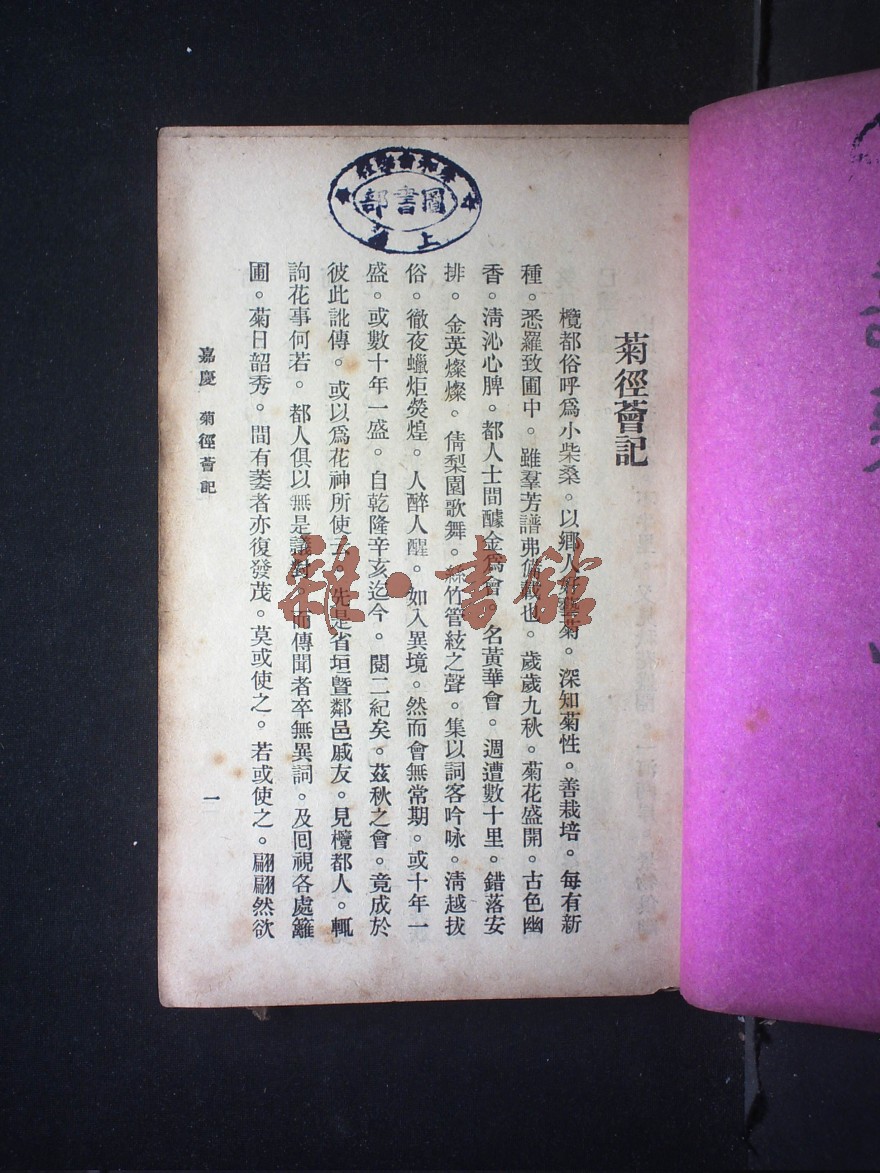 圖書部
上
菊徑薈記
欖都俗呼爲小柴桑。以鄉人好藝菊。深知菊性。善栽培。每有新
種。悉羅致圃中。雖羣芳譜弗備載也。歲歲九秋。菊花盛開。古色幽
香。清沁心脾。都人士間醵金爲會。名黃華會。週遭數十里。錯落安
排。金英燦燦。倩梨園歌舞。絲竹管絃之聲。集以詞客吟咏。清越拔
俗。徹夜蠟炬熒煌。人醉人醒。如入異境。然而會無常期。或十年一
盛。或數十年一盛。自乾隆辛亥迄今。閱二紀矣。茲秋之會。竟成於
彼此訛傳。或以爲花神所使云。先是省垣暨鄰邑戚友。見欖都人。輒
詢花事何若。都人俱以無是議對。而傳聞者卒無異詞。及囘視各處籬
圃。菊日韶秀。間有萎者亦復發茂。莫或使之。若或使之。翩翩然欲
嘉慶 菊徑薈記
一
雜·書館